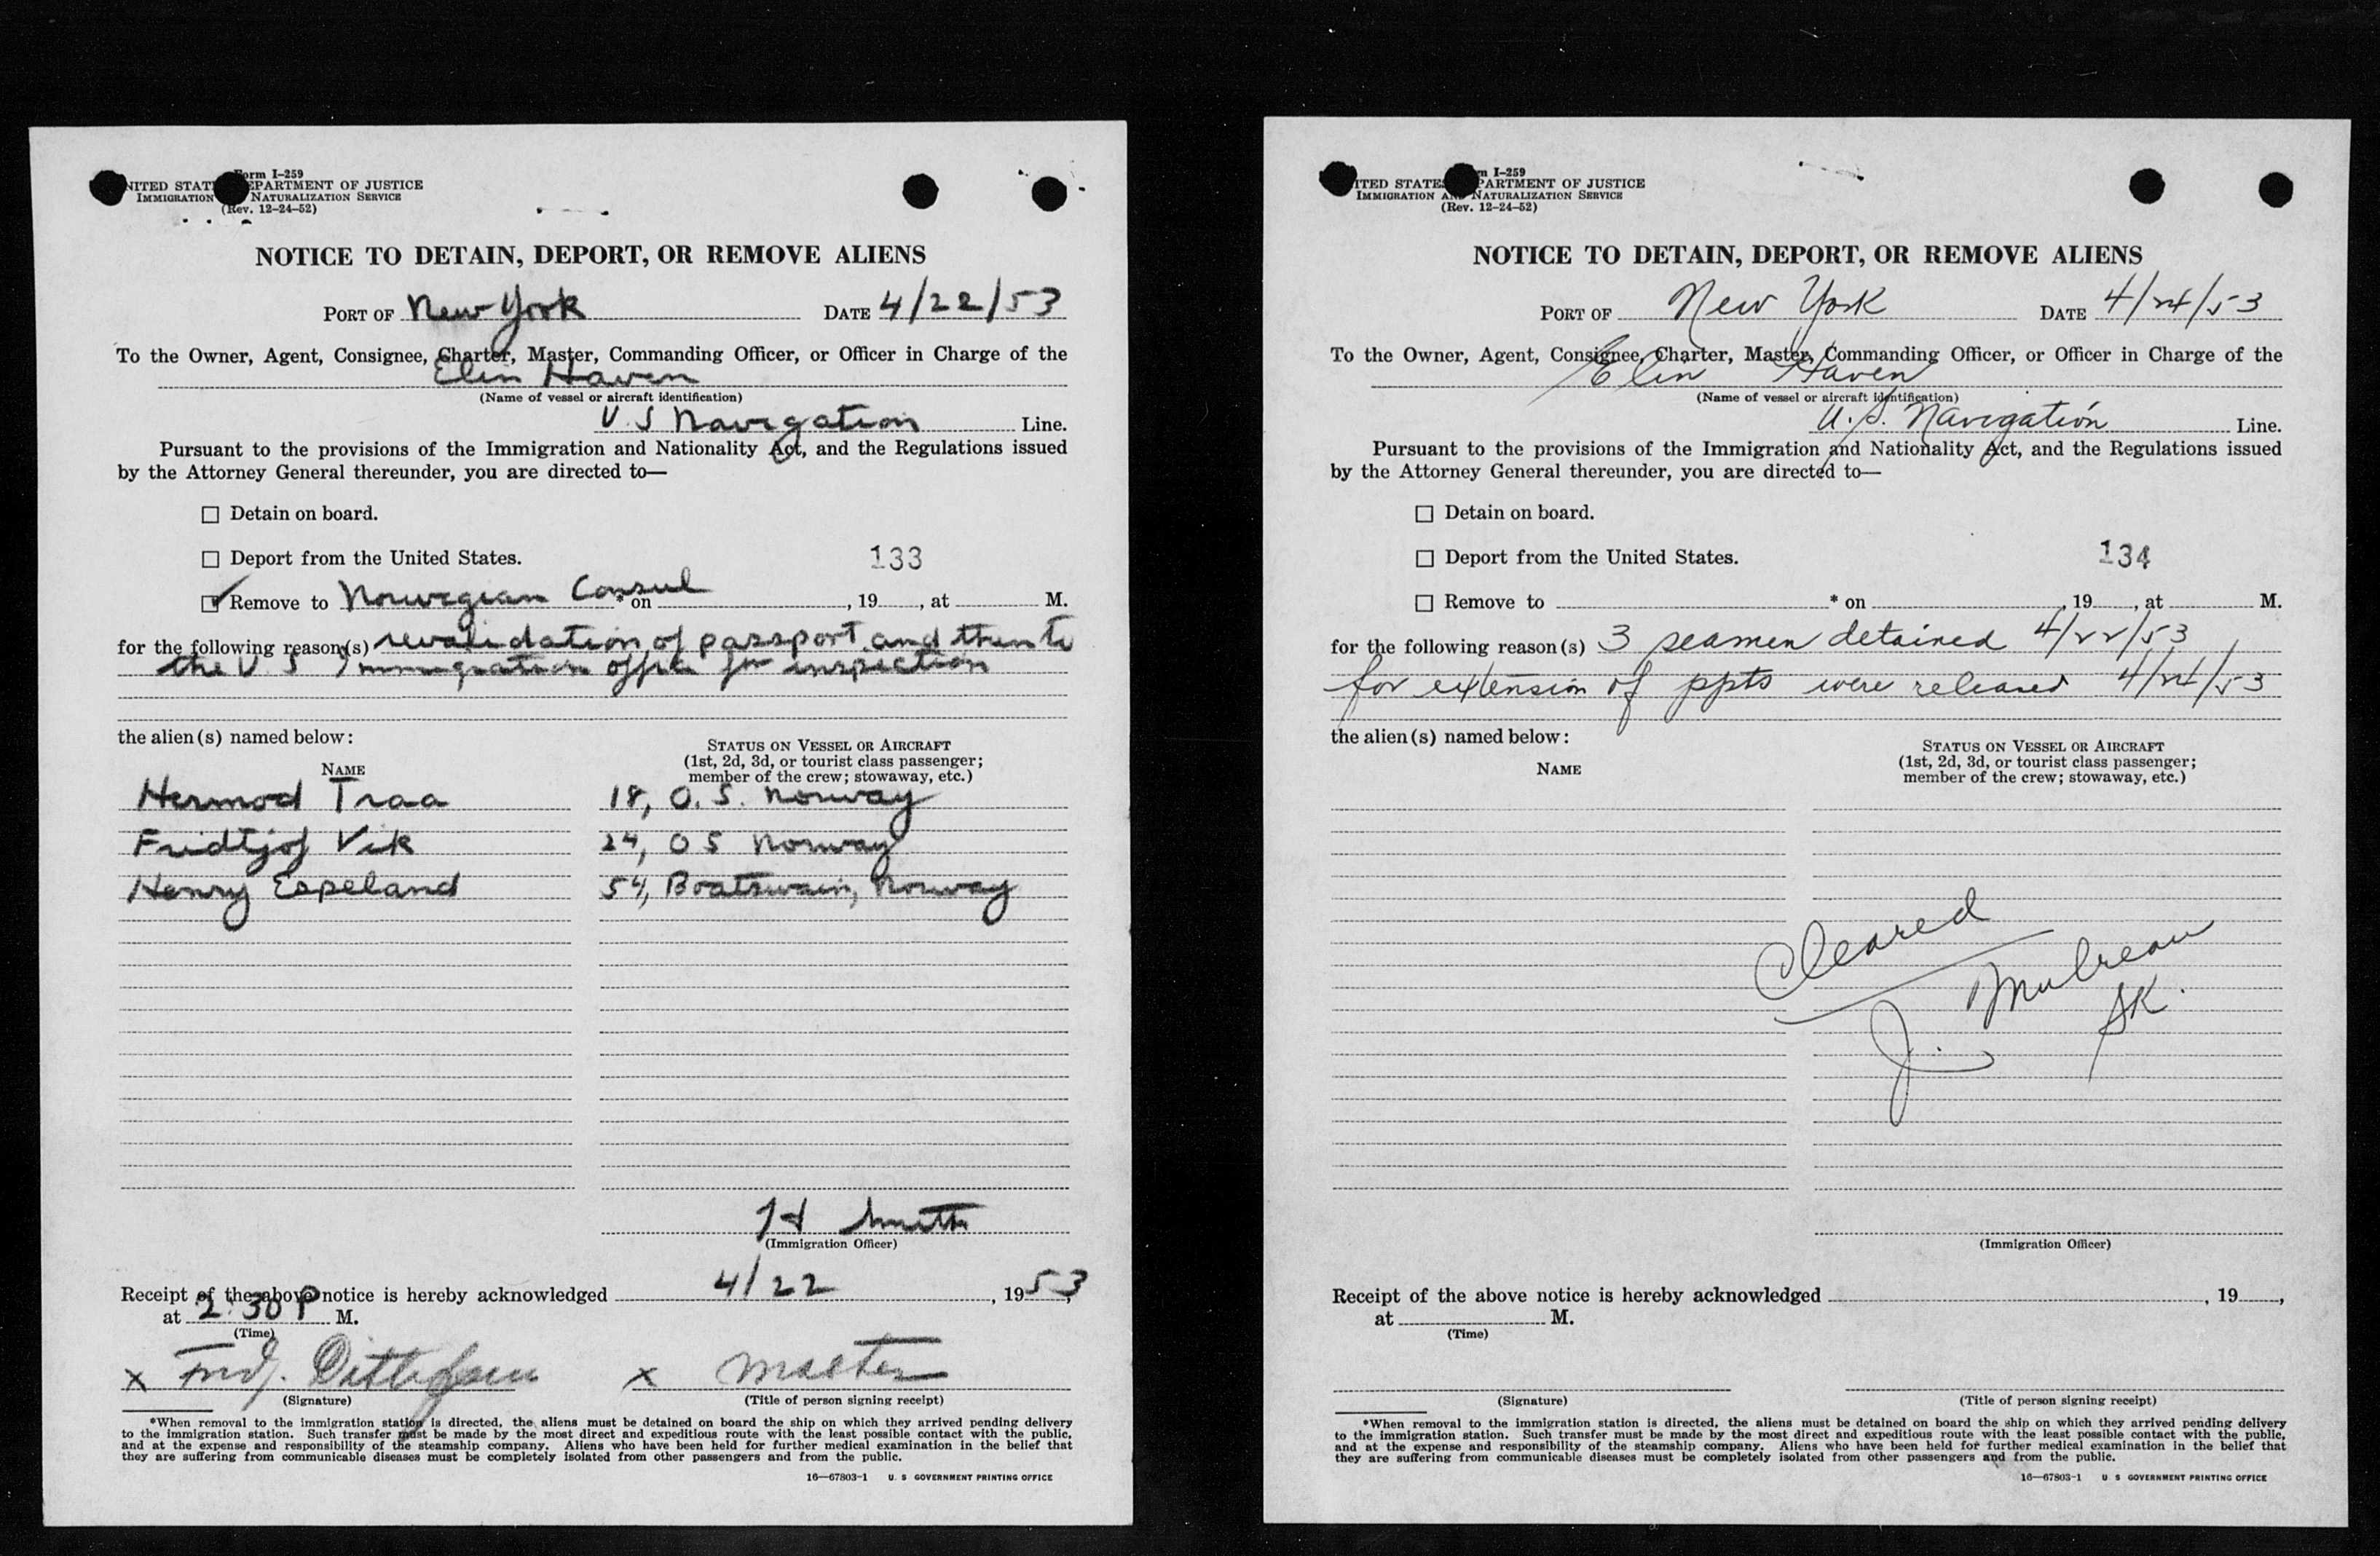 Form I-259
UNITED STATES DEPARTMENT OF JUSTICE
IMMIGRATION NATURALIZATION SERVICE
(Rev. 12-24-52)
NOTICE TO DETAIN, DEPORT, OR REMOVE ALIENS
PORT OF New York DATE 4/22/53
To the Owner, Agent, Consignee, Charter, Master, Commanding Officer, or Officer in Charge of the
Elin Haven
(Name of vessel or aircraft identification)
U S Navigation Line.
Pursuant to the provisions of the Immigration and Nationality Act, and the Regulations issued
by the Attorney General thereunder, you are directed to—
☐ Detain on board.
☐ Deport from the United States. 133
☑ Remove to Norwegian Consul * on , 19 , at M.
for the following reason(s) revalidation of passport and then to
the U.S Immigration office for inspection
the alien(s) named below:
NAME
STATUS ON VESSEL OR AIRCRAFT
(1st, 2d, 3d, or tourist class passenger;
member of the crew; stowaway, etc.)
Hermod Traa 18, O.S. Norway
Fridtjof Vik 24, O S Norway
Henry Espeland 54, Boatswain, Norway
Smith
(Immigration Officer)
Receipt of the above notice is hereby acknowledged 4/22 , 1953,
at 2:30 P M.
(Time)
x Fridj. Dittefsen x Master
(Signature) (Title of person signing receipt)
*When removal to the immigration station is directed, the aliens must be detained on board the ship on which they arrived pending delivery
to the immigration station. Such transfer must be made by the most direct and expeditious route with the least possible contact with the public,
and at the expense and responsibility of the steamship company. Aliens who have been held for further medical examination in the belief that
they are suffering from communicable diseases must be completely isolated from other passengers and from the public.
16—67803-1 U. S GOVERNMENT PRINTING OFFICE
I-259
UNITED STATES DEPARTMENT OF JUSTICE
IMMIGRATION AND NATURALIZATION SERVICE
(Rev. 12-24-52)
NOTICE TO DETAIN, DEPORT, OR REMOVE ALIENS
PORT OF New York DATE 4/24/53
To the Owner, Agent, Consignee, Charter, Master, Commanding Officer, or Officer in Charge of the
Elin Haven
(Name of vessel or aircraft identification)
U.S. Navigation Line.
Pursuant to the provisions of the Immigration and Nationality Act, and the Regulations issued
by the Attorney General thereunder, you are directed to—
☐ Detain on board.
☐ Deport from the United States. 134
☐ Remove to * on , 19 , at M.
for the following reason(s) 3 seamen detained 4/22/53
for extension of ppts were released 4/24/53
the alien(s) named below:
NAME
STATUS ON VESSEL OR AIRCRAFT
(1st, 2d, 3d, or tourist class passenger;
member of the crew; stowaway, etc.)
Cleared
J. Mulrean
SK.
(Immigration Officer)
Receipt of the above notice is hereby acknowledged , 19 ,
at M.
(Time)
(Signature) (Title of person signing receipt)
*When removal to the immigration station is directed, the aliens must be detained on board the ship on which they arrived pending delivery
to the immigration station. Such transfer must be made by the most direct and expeditious route with the least possible contact with the public,
and at the expense and responsibility of the steamship company. Aliens who have been held for further medical examination in the belief that
they are suffering from communicable diseases must be completely isolated from other passengers and from the public.
16—67803-1 U S GOVERNMENT PRINTING OFFICE